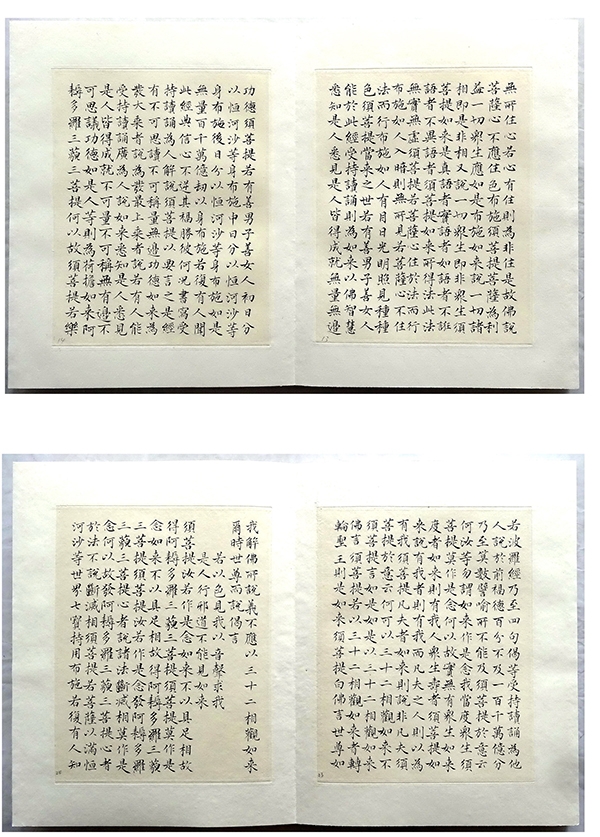 無所住心若心有住則為非住是故佛說
菩薩心不應住色布施須菩提菩薩為利
益一切衆生應如是布施如来說一切諸
相即是非相又說一切衆生即非衆生須
菩提如来是真語者實語者如語者不誑
語者不異語者須菩提如来所得法此法
無實無虛須菩提若菩薩心住於法而行
布施如人入暗則無所見若菩薩心不住
法而行布施如人有目日光明照見種種
色須菩提當来之世若有善男子善女人
能於此經受持讀誦則為如来以佛智慧
悉知是人悉見是人皆得成就無量無邊
13
功德須菩提若有善男子善女人初日分
以恒河沙等身布施中日分以恒河沙等
身布施後日分以恒河沙等身布施如是
無量百千萬億劫以身布施若復有人聞
此經典信心不逆其福勝彼何況書寫受
持讀誦為人解說須菩提以要言之是經
有不可思議不可稱量無邊功德如来為
發大乘者說為發最上乘者說若有人能
受持讀誦廣為人說如来悉知是人悉見
是人皆得成就不可量不可稱無有邊不
可思議功德如是人等則為荷擔如来阿
耨多羅三藐三菩提何以故須菩提若樂
14
若波羅經乃至四句偈等受持讀誦為他
人說於前福德百分不及一百千萬億分
乃至算數譬喻所不能及須菩提於意云
何汝等勿謂如来作是念我當度衆生須
菩提莫作是念何以故實無有衆生如来
度者如来則有我人衆生壽者須菩提如
来說有我者則有我而凡夫之人則以為
有我須菩提凡夫者如来則說非凡夫須
菩提於意云何可以三十二相觀如来不
須菩提言如是如是以三十二相觀如来
佛言須菩提若以三十二相觀如来者轉
輪聖王則是如来須菩提白佛言世尊如
我解佛所說義不應以三十二相觀如来
爾時世尊而說偈言
若以色見我以音聲求我
是人行邪道不能見如来
須菩提汝若作是念如来不以具足相故
得阿耨多羅三藐三菩提須菩提莫作是
念如来不以具足相故得阿耨多羅三藐
三菩提須菩提汝若作是念發阿耨多羅
三藐三菩提心者說諸法斷滅相莫作是
念何以故發阿耨多羅三藐三菩提心者
於法不說斷滅相須菩提若菩薩以滿恒
河沙等世界七寶持用布施若復有人知